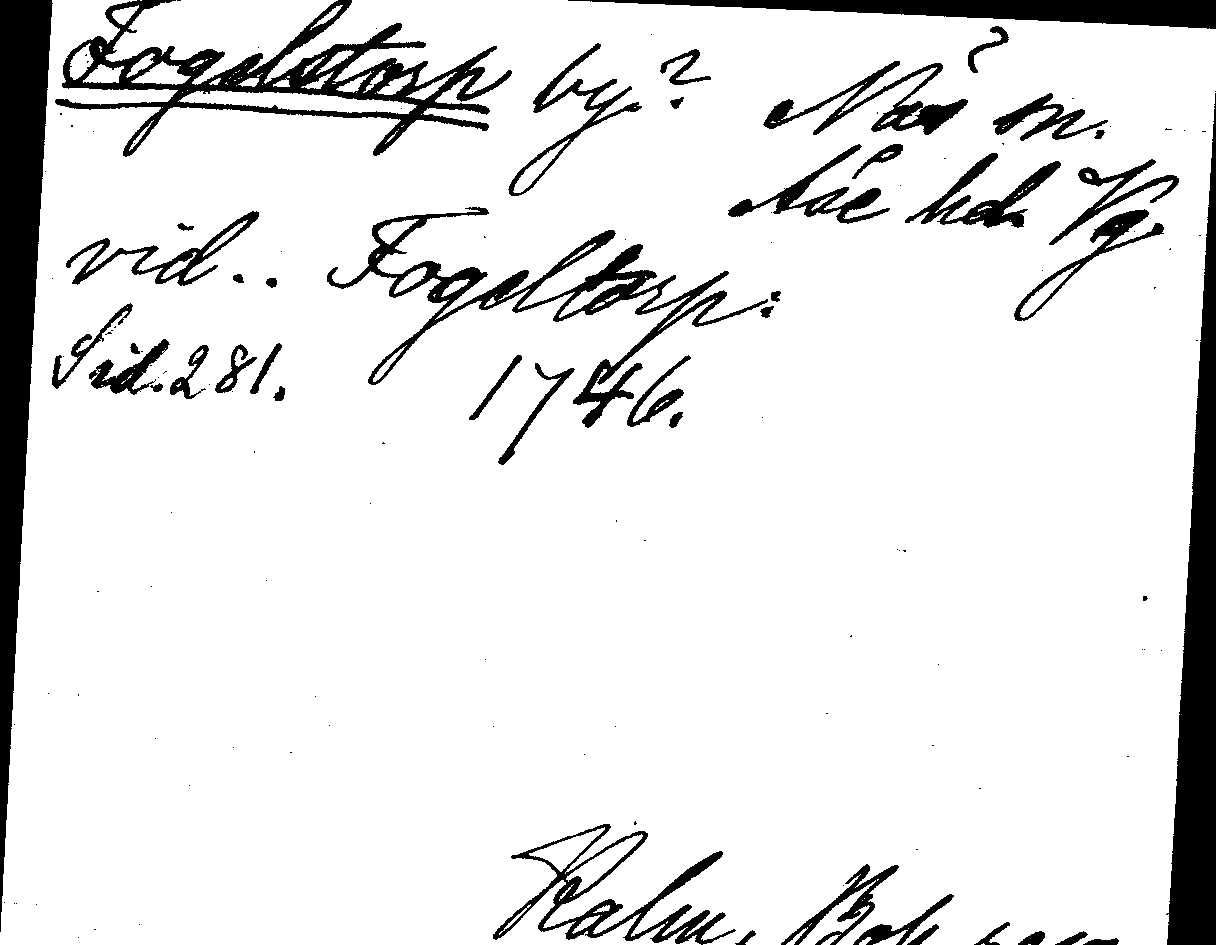 Fogelstorp by.? Näs sn. ?
Åse hd. Vg.
vid.. Fogeltorp:
Sid. 281. 1746.
Kalm, Boh. resa